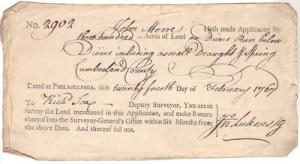 No. 2902 John Moore Hath made Application for
three hundred Acres of Land on Divers Run below
Divers including a small Draught & Spring
Cumberland County
Dated at PHILADELPHIA, this twenty fourth Day of February 1767
To Rich'd Deputy Surveyor, You are to
survey the Land mentioned in this Application, and make Return
thereof into the Surveyor-General's Office within Six Months from
the above Date. And thereof fail not. Jno Lukens SG